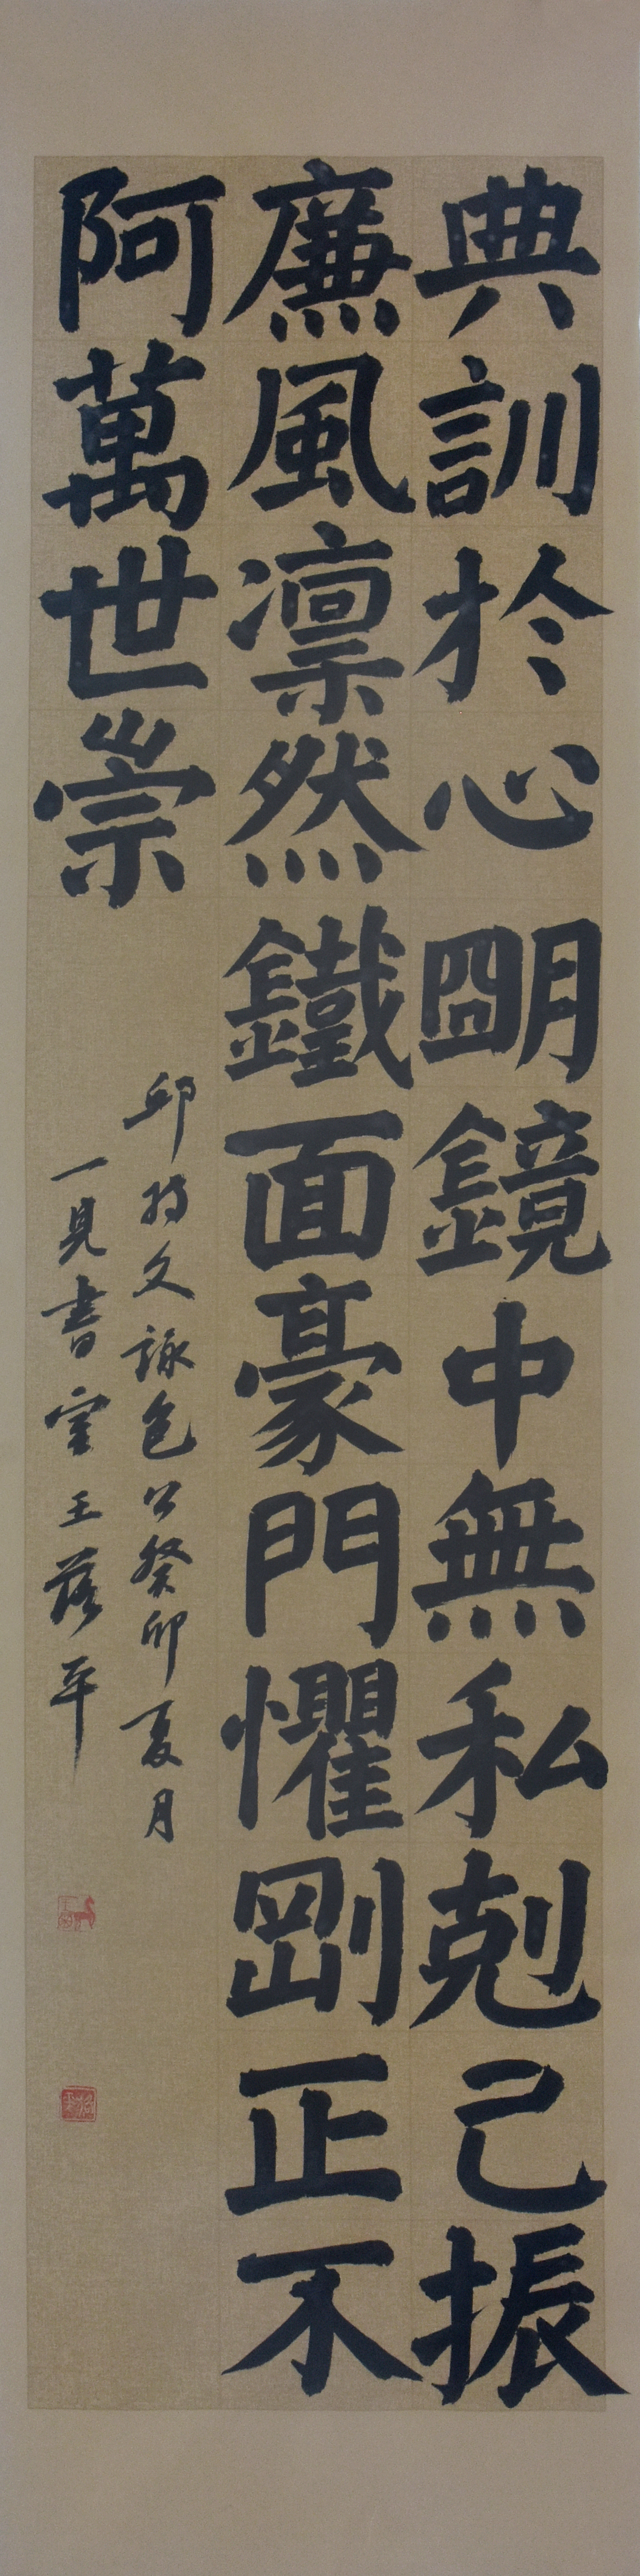 典訓於心朙鏡中無私剋己振
廉風凛然鐵面豪門懼剛正不
阿萬世崇
邱文詠包公癸卯夏月
一見書室王落平